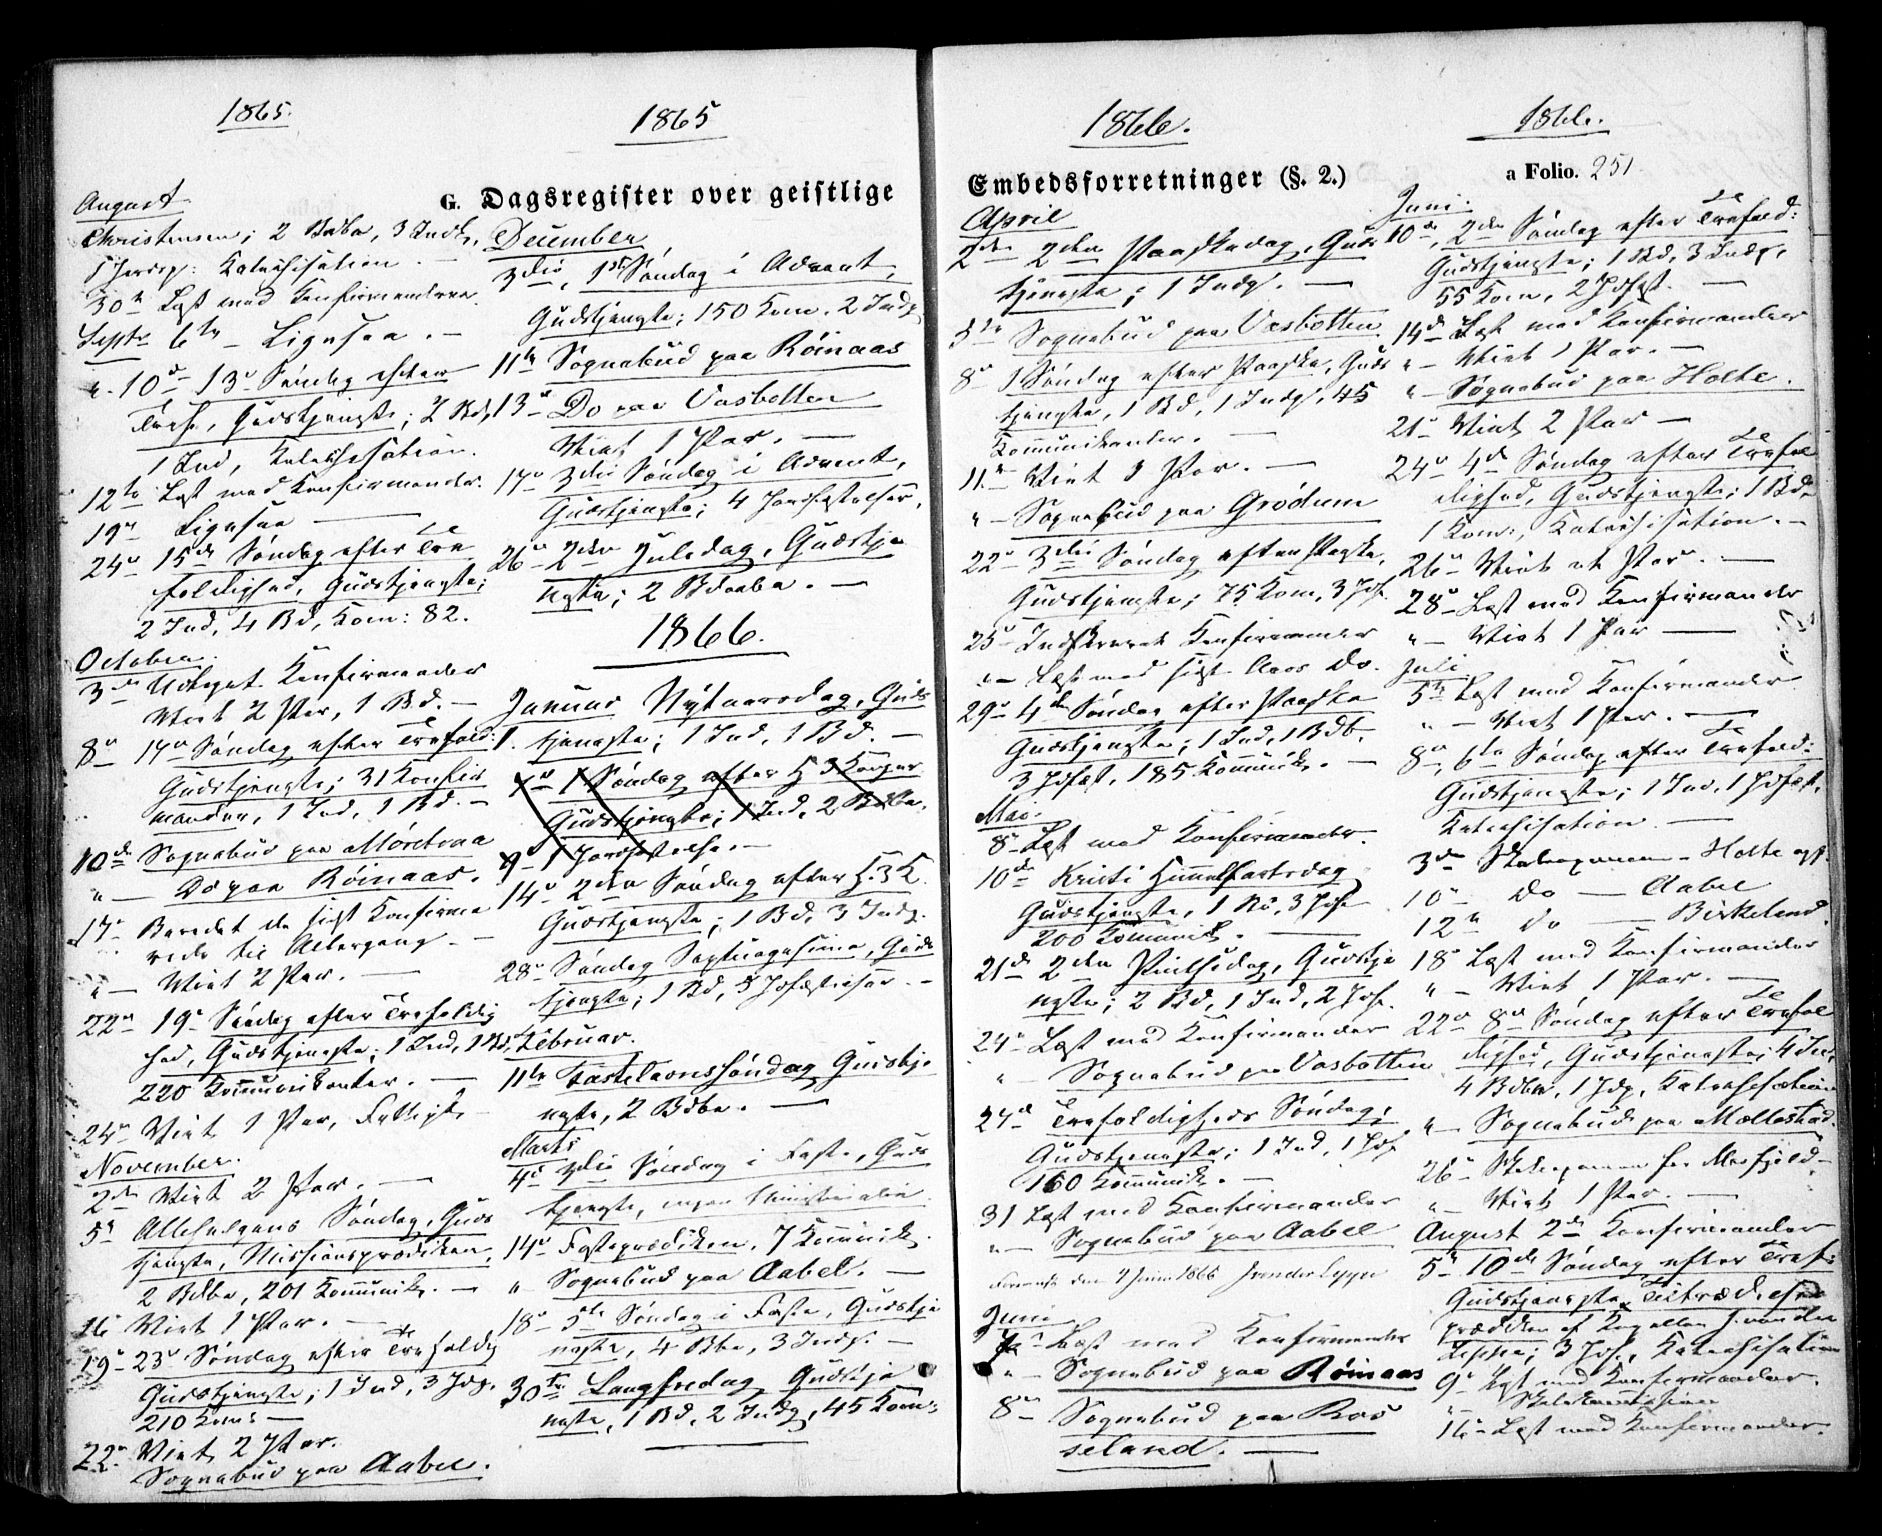 1865.
1865
G. Dagsregister over geistlige
August
Christensen; 2 Bdbø, 3 Indl,
Katechisation.
30te Læst med Konfirmanderne.
Septr 6te – Ligesaa. –
" 10de 13de Søndag efter
Tref, Gudstjeneste; 2 Bd,
1 Ind, Katechisation.
12te Læst med Konfirmander.
19de Ligesaa
24de 15de Søndag efter Tre
foldighed, Gudstjeneste;
2 Ind, 4 Bd, Kom: 82.
October.
3die Konfirmander
Viet 2 Par, 1 Bd. –
8de 17de Søndag efter Trefold:
Gudstjeneste; 31 Konfir
mander, 1 Ind, 1 Bd. –
10de Sognebud paa
" – Do paa Røinaas.
17de Beredet de sidst Konfirme
rede til Altergang. –
" – Viet 2 Par. –
22de 19de Søndag efter Trefoldig
hed, Gudstjeneste; 1 Ind, 1 Bd,
220 Kommunikanter. –
24de Viet 1 Par,
November.
2den Viet 2 Par. –
5te Allehelgens Søndag, Guds
tjeneste, Missionsprædiken,
2 Bdbø, 201 Kommunik. –
16 Viet 1 Par. –
19de 23de Søndag efter Trefoldig
Gudstjeneste; 1 Ind, 3 Jdf.
210 Kom: –
22de Viet 2 Par.
Sognebud paa Aabel.
December
3die, 1ste Søndag i Advent,
Gudstjeneste; 150 Kom. 2 Indl
11te Sognebud paa Røinaas
13de Do paa Vasbotten
Viet 1 Par. –
17de 3die Søndag i Advent,
Gudstjeneste; 4 Jordfæstelser.
26de 2den Juledag, Gudstje
neste; 2 Bdøbø. –
1866.
Januar Nytaarsdag, Guds
1. tjeneste; 1 Ind, 1 Bd. –
7de 1 Søndag efter H 3 Konger
Gudstjeneste; 1 Ind, 2 Bdbø,
1 Jordfæstelse. –
14de 2den Søndag efter H. 3 K.
Gudstjeneste; 1 Bd, 3 Indl.
28de Søndag Septuagesima, Guds
tjeneste; 1 Bd, 5 Jdfæstelser. –
Februar.
11te Fastelavnssøndag Gudstje
neste, 2 Bdbø. –
Marts
4de 3die Søndag i Faste, Guds
tjeneste, ingen Ministerialia.
14de Fasteprædiken, 7 Kommunik.
" Sognebud paa Aabel. –
18de 5te Søndag i Faste, Gudstje
neste, 4 Bbø, 3 Indl. –
30te Langfredag Gudstje
neste, 1 Bd, 2 Indl, 45 Kom:
1866.
1866.
Embedsforretninger (§. 2.)
a Folio. 251
April
2den 2den Paaskedag, Guds
tjeneste; 1 Indl. –
Sognebud paa Vasbotten.
8de 1 Søndag efter Paaske, Guds
tjeneste, 1 Bd, 1 Indl, 45
Kommunikanter. –
11te Viet 3 Par. –
" – Sognebud paa Grødum
22de 3die Søndag efter Paaske,
Gudstjeneste; 75 Kom, 3 Jdf.
25de Indskrevet Konfirmander
" – Læst med sidst Aars Do.
29de 4de Søndag efter Paaske
Gudstjeneste; 1 Ind, 1 Bdb,
3 Jdfæst, 185 Kommunik. –
Mai.
8de Læst med Konfirmander.
10de Kristi Himmelfartsdag
Gudstjeneste, 1 Bd, 3 Jdf
200 Kommunik. –
21de 2den Pintsedag, Gudstje
neste; 2 Bd, 1 Ind, 2 Jdf.
24de Læst med Konfirmander
" Sognebud paa Vasbotten
27de Trefoldigheds Søndag,
Gudstjeneste; 1 Ind, 1 Jdf
160 Kommunik. –
31 Læst med Konfirmander
" – Sognebud paa Aabel
den 4 Juni 1866 J von der Lippe
Juni
7de Læst med Konfirmander
" – Sognebud paa Røinaas
8de Sognebud paa Ros
seland. –
Juni.
10de, 2den Søndag efter Trefold:
Gudstjeneste; 1 Bd, 3 Indl,
55 Kom, 2 Jdfst. –
14de Læst med Konfirmander
" – Viet 1 Par. –
" – Sognebud paa Holte.
21de Viet 2 Par –
24de 4de Søndag efter Trefol
dighed, Gudstjeneste; 1 Bd,
1 Kom:, Katechisation. –
26de Viet et Par. –
28de Læst med Konfirmander
" – Viet 1 Par –
Juli
5te Læst med Konfirmander
" – Viet 1 Par. –
8de, 6te Søndag efter Trefold:
Gudstjeneste; 1 Ind, 1 Jdfæst,
Katechisation. –
3die Skoleexamen – Holte
10de Do – Aabel
12te do – Birkeland.
18de Læst med Konfirmander
" – Viet 1 Par. –
22de 8de Søndag efter Trefol
dighed, Gudstjeneste; 4 Ind,
4 Bdbø, 1 Jdf, Katechisation
" – Sognebud paa Mollestad.
26de Skoleexamen for
" – Viet 1 Par. –
August 2de Konfirmander
5te 10de Søndag efter Tref:
Gudstjeneste,
prædiken af J. von der
Lippe; 3 Jdf, Katechisation
9de Læst med Konfirmander.
16de Læst med Konfirmander.